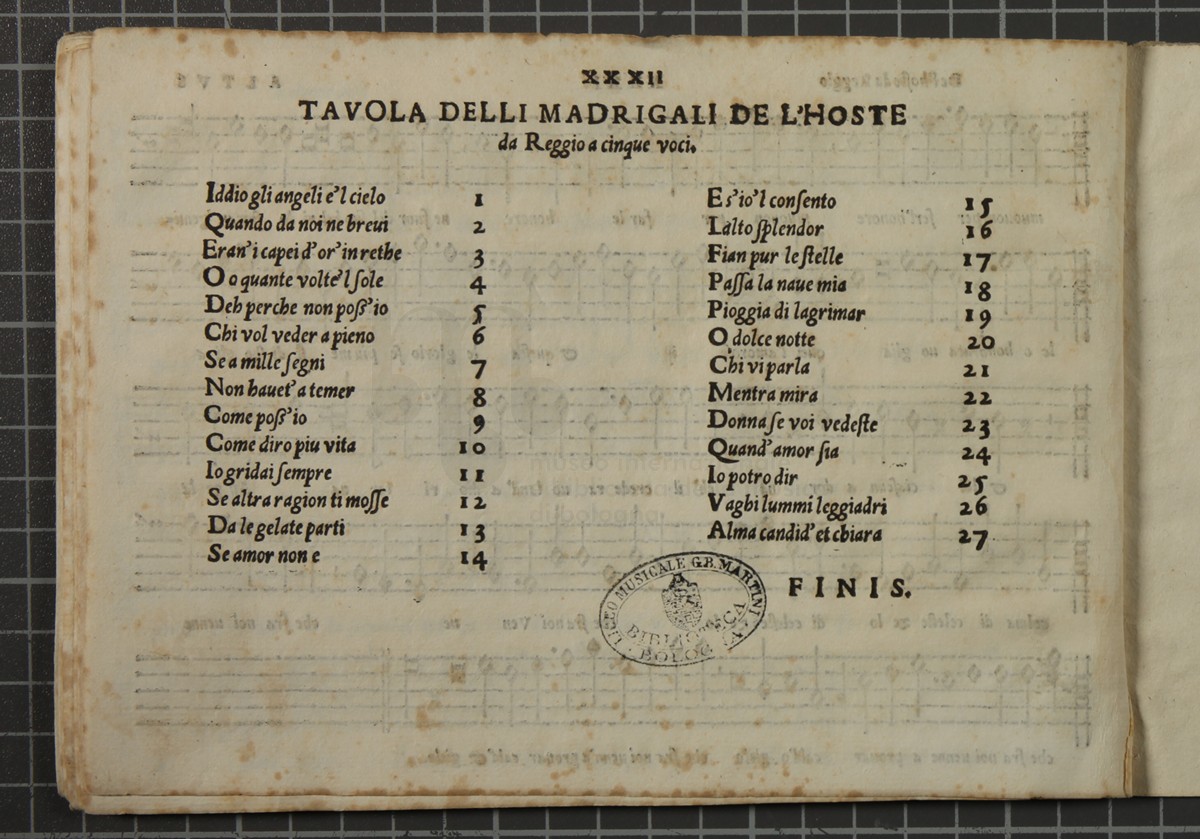 XXXII
TAVOLA DELLI MADRIGALI DE L'HOSTE
da Reggio a cinque voci.
Iddio gli angeli e'l cielo 1
Quando da noi ne brevi 2
Eran'i capei d'or'in rethe 3
O o quante volte'l ſole 4
Deh perche non poſſ'io 5
Chi vol veder a pieno 6
Se a mille ſegni 7
Non havet'a temer 8
Come poſſ'io 9
Come diro piu vita 10
Io gridai ſempre 11
Se altra ragion ti moſſe 12
Da le gelate parti 13
Se amor non e 14
E s'io'l conſento 15
L'alto ſplendor 16
Fian pur le ſtelle 17
Paſſa la naue mia 18
Pioggia di lagrimar 19
O dolce notte 20
Chi vi parla 21
Mentra mira 22
Donna ſe voi vedeſte 23
Quand'amor ſia 24
Io potro dir 25
Vaghi lummi leggiadri 26
Alma candid'et chiara 27
FINIS.
LICEO MUSICALE G.B. MARTINI
BIBLIOTECA
BOLOGNA